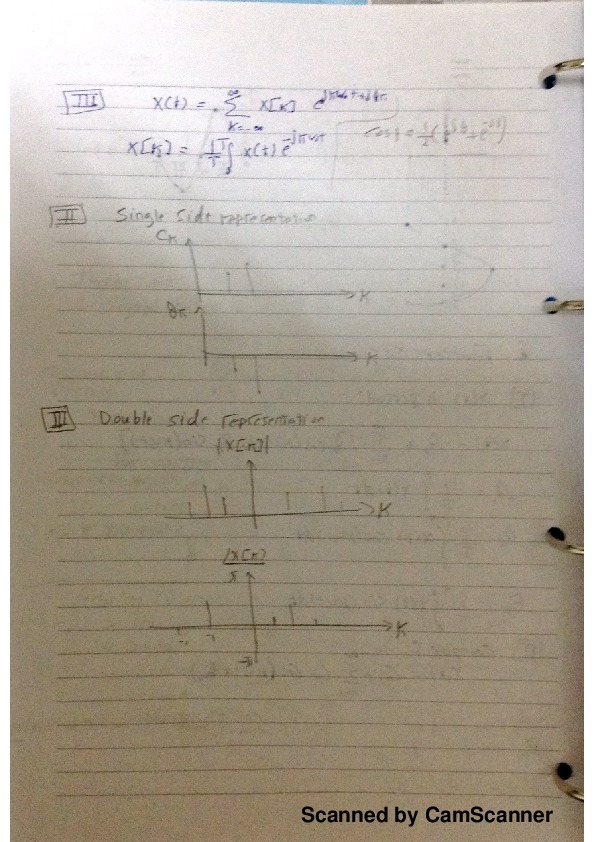 III
X(t) = ∑ X[K] e
K=-∞ ∞
X[K] = 1/T ∫ x(t) e^-jkω₀t
cosϕ = 1/2(e^jϕ + e^-jϕ)
II Single Side representation
CK
K
θK
K
III Double side representation
|X[K]|
K
/X[K]
π
K
-π
Scanned by CamScanner